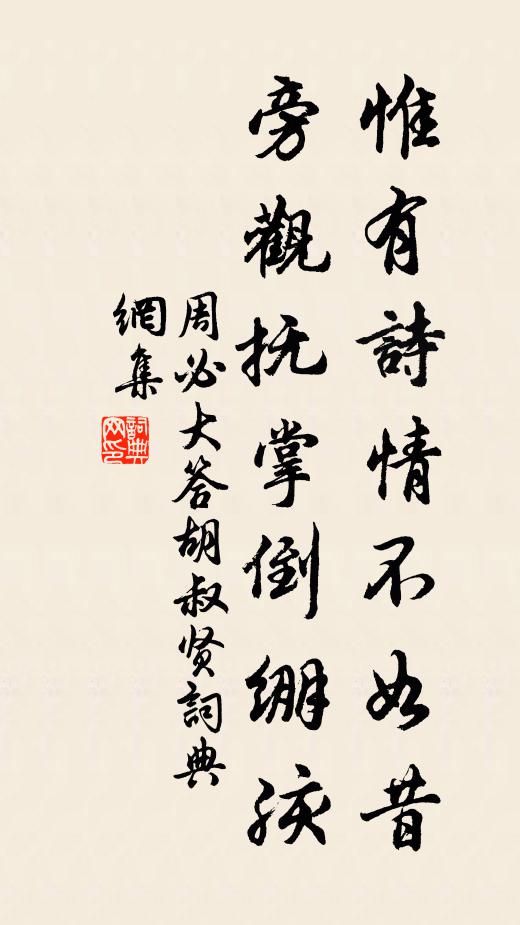 惟有詩情不如昔
旁觀抚掌倒绷孩
周必大答胡叔贤詞典
網集
詞典
网印